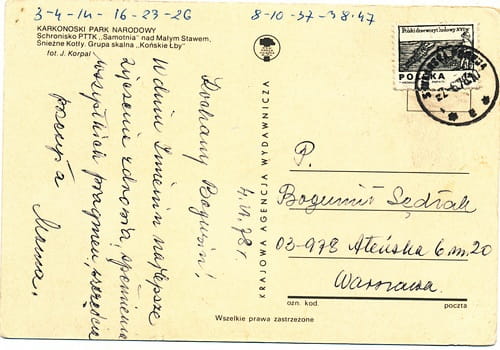 3-4-14-16-23-26
8-10-37-38-47
KARKONOSKI PARK NARODOWY
Schronisko PTTK „Samotnia" nad Małym Stawem,
Śnieżne Kotły. Grupa skalna „Końskie Łby"
fot. J. Korpal
Polski drzeworyt ludowy XVI w.
POLSKA
Kochany Boguniu!
W dniu Imienin najlepsze
życzenia zdrowia, spełnienia
wszystkich pragnień, szczęścia
przesyła
Mama.
4.VI.78r.
KRAJOWA AGENCJA WYDAWNICZA
P.
Bogumił Sędzak
03-978 Ateńska 6 m. 20
Warszawa.
ozn. kod.
poczta
Wszelkie prawa zastrzeżone